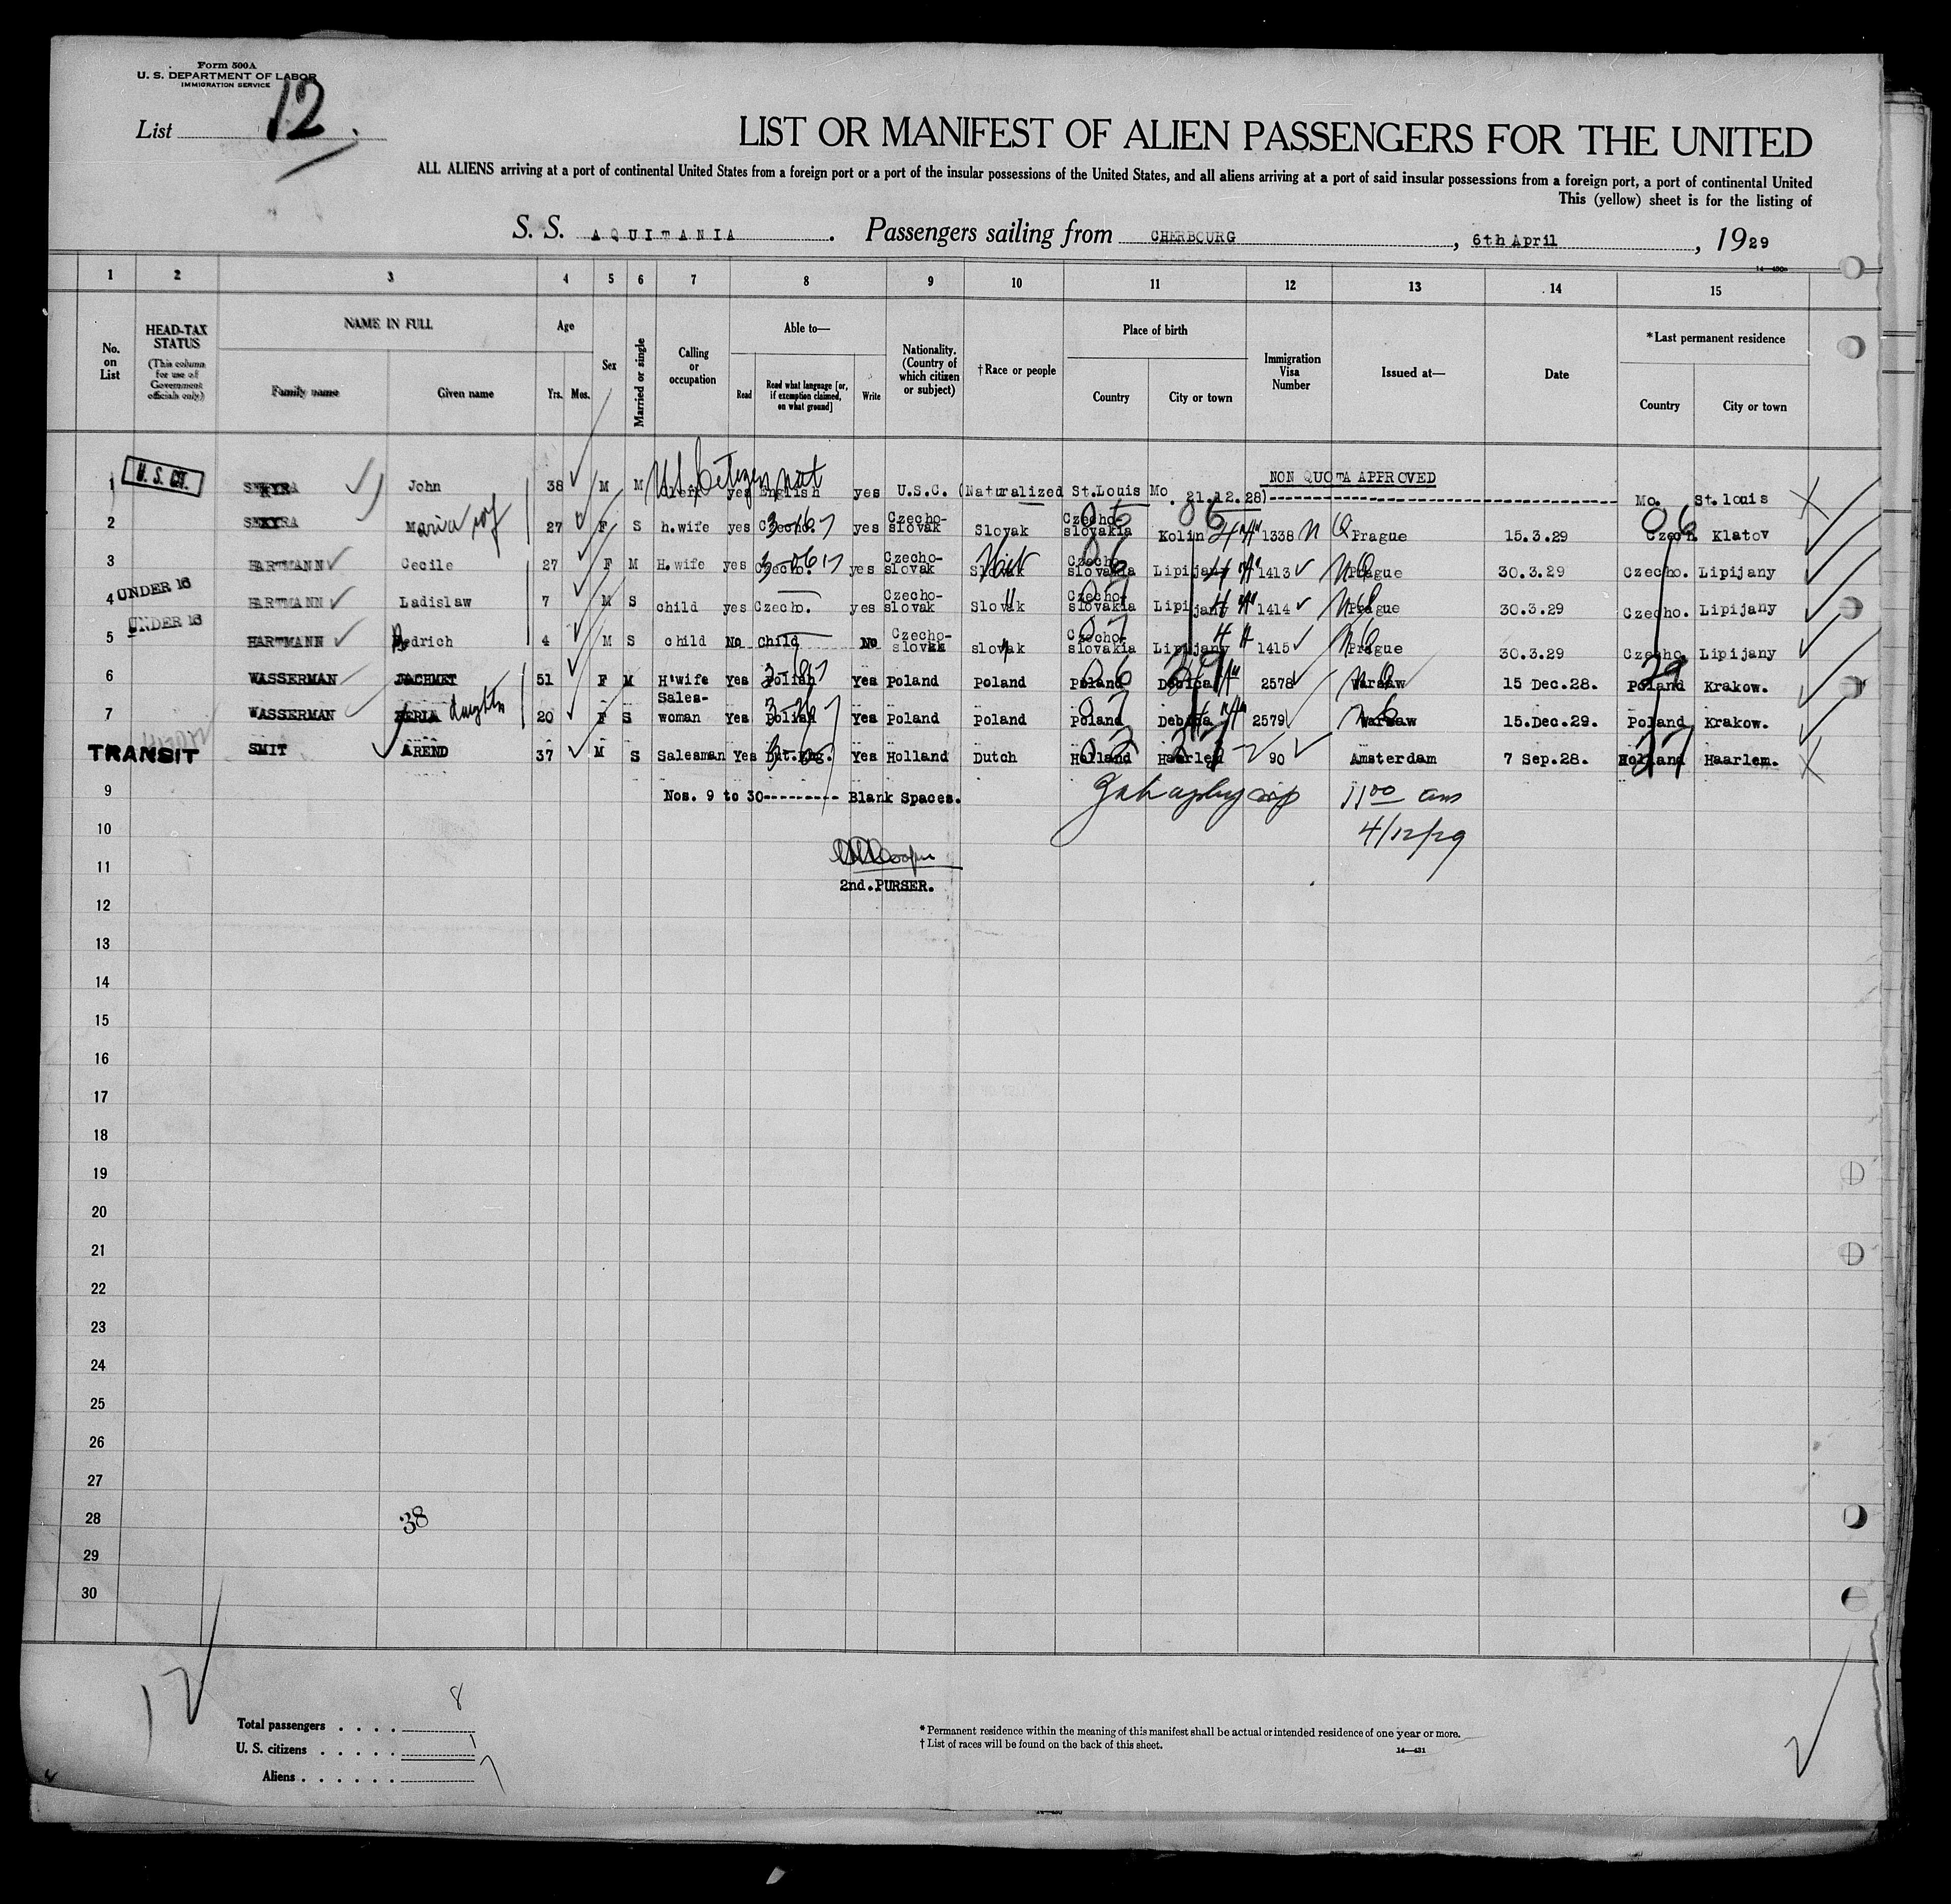 Form 500A
U. S. DEPARTMENT OF LABOR
IMMIGRATION SERVICE
List 12.
LIST OR MANIFEST OF ALIEN PASSENGERS FOR THE UNITED
ALL ALIENS arriving at a port of continental United States from a foreign port or a port of the insular possessions of the United States, and all aliens arriving at a port of said insular possessions from a foreign port, a port of continental United
This (yellow) sheet is for the listing of
S. S. AQUITANIA. Passengers sailing from CHERBOURG, 6th April, 1929
14—430a
1 2 3 4 5 6 7 8 9 10 11 12 13 14 15
No. on List
HEAD-TAX STATUS
(This column for use of Government officials only)
NAME IN FULL
Family name Given name
Age
Yrs. Mos.
Sex
Married or single
Calling or occupation
Able to—
Read
Read what language [or, if exemption claimed, on what ground]
Write
Nationality. (Country of which citizen or subject)
†Race or people
Place of birth
Country City or town
Immigration Visa Number
Issued at—
Date
*Last permanent residence
Country City or town
NON QUOTA APPROVED
1 U.S. CIT. John 38 M M U.S. Citizen nat yes English yes U.S.C. (Naturalized St.Louis Mo. 21.12.28) Mo. St.louis
2 Maria 27 F S h.wife yes Czecho. yes Czecho-slovak Slovak Czecho-slovakia Kolin 1338 N Q Prague 15.3.29 Czech. Klatov
3 HARTMANN Cecile 27 F M H.wife yes Czecho. yes Czecho-slovak Slovak Czecho-slovakia Lipijany 1413 Prague 30.3.29 Czecho. Lipijany
UNDER 16
4 HARTMANN Ladislaw 7 M S child yes Czecho. yes Czecho-slovak Slovak Czecho-slovakia Lipijany 1414 Prague 30.3.29 Czecho. Lipijany
UNDER 16
5 HARTMANN Bedrich 4 M S child No Child No Czecho-slovak slovak Czecho-slovakia Lipijany 1415 Prague 30.3.29 Czecho. Lipijany
6 WASSERMAN JACHMET 51 F M H'wife Yes Polish Yes Poland Poland Poland Debica 2578 Warsaw 15 Dec.28. Poland Krakow.
7 WASSERMAN daughter 20 F S Sales-woman Yes Polish Yes Poland Poland Poland Debica 2579 Warsaw 15.Dec.29. Poland Krakow.
TRANSIT SMIT AREND 37 M S Salesman Yes Dut.Eng. Yes Holland Dutch Holland Haarlem 90 Amsterdam 7 Sep.28. Holland Haarlem.
9 Nos. 9 to 30--------- Blank Spaces. 11 00 am
10 4/12/29
11 2nd.PURSER.
12
13
14
15
16
17
18
19
20
21
22
23
24
25
26
27
28 38
29
30
12
Total passengers . . . . 8
U. S. citizens . . . . . 1
Aliens . . . . . . 7
* Permanent residence within the meaning of this manifest shall be actual or intended residence of one year or more.
† List of races will be found on the back of this sheet.
14—431